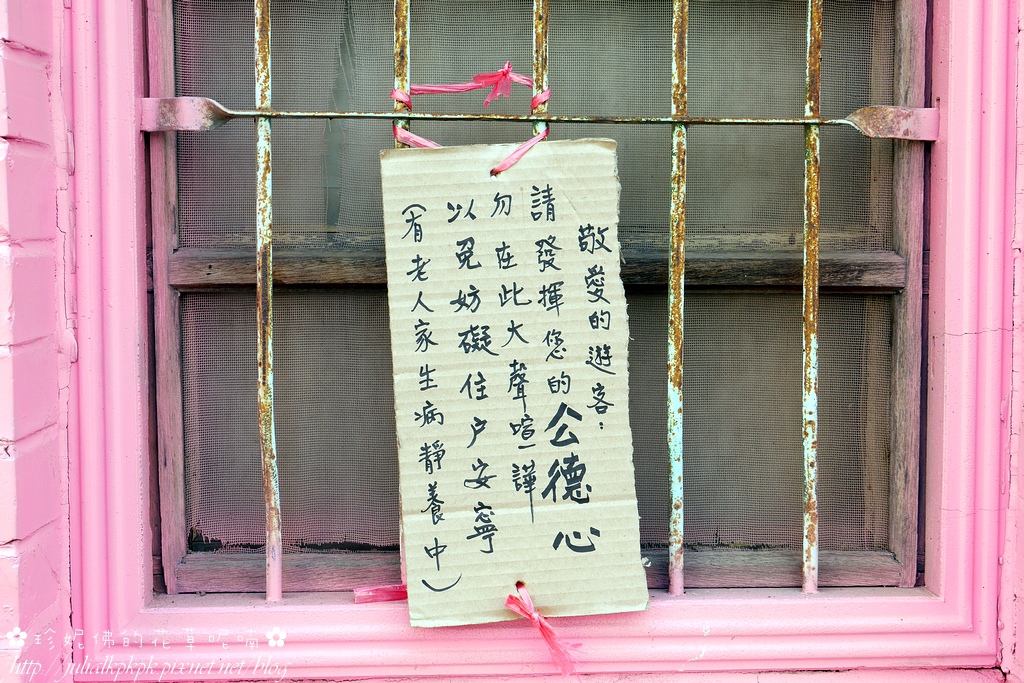 敬愛的遊客：
請發揮您的公德心
勿在此大聲喧譁
以免妨礙住户安寧
（有老人家生病靜養中）
珍妮佛的花草呢喃
http://juliallkpkpk.pixnet.net/blog